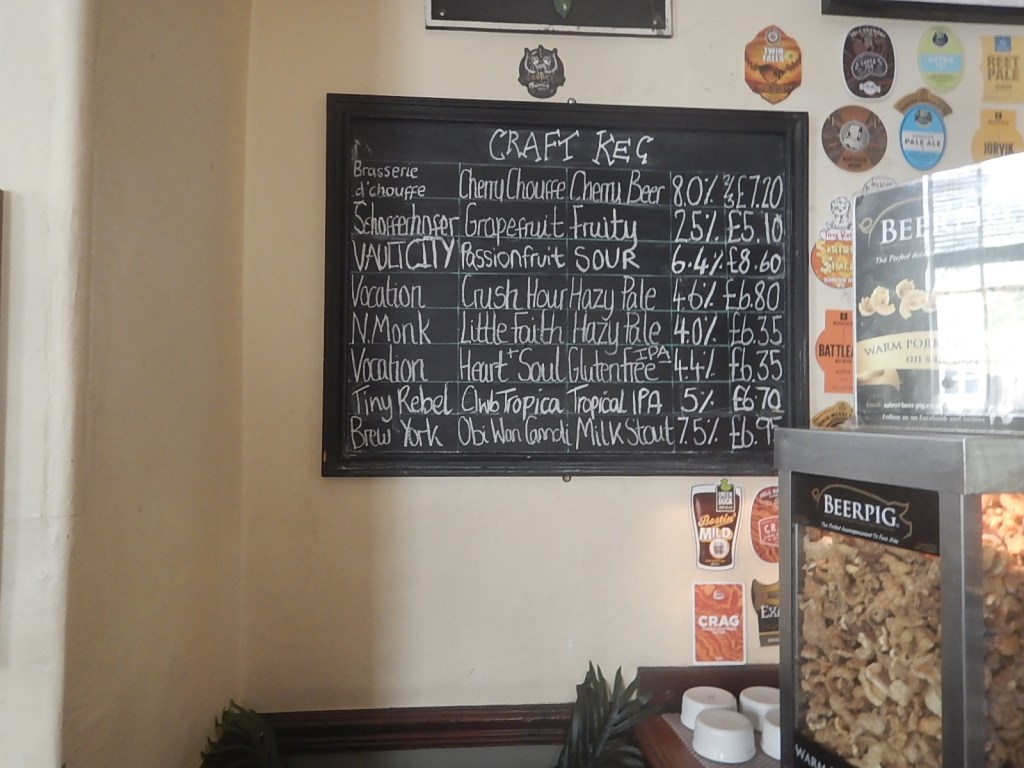 CRAFT KEG
Brasserie d'chouffe Cherry Chouffe Cherry Beer 8.0% ⅔ £7.20
Schofferhofer Grapefruit Fruity 2.5% £5.10
VAULT CITY Passionfruit SOUR 6.4% £8.60
Vocation Crush Hour Hazy Pale 4.6% £6.80
N.Monk Little Faith Hazy Pale 4.0% £6.35
Vocation Heart + Soul Glutenfree IPA 4.4% £6.35
Tiny Rebel Clwb Tropica Tropical IPA 5% £6.70
Brew York Obi Wan Candi Milk Stout 7.5% £6.95
TWIN
BEET
PALE
PALE ALE
JORVIK
BEERP
The Perfect
WARM POR
on s
BATTLE
GREEN DUCK
Bostin'
MILD
CRAG
EX
BEERPIG.
The Perfect Accompaniment To Your Ale
WARM